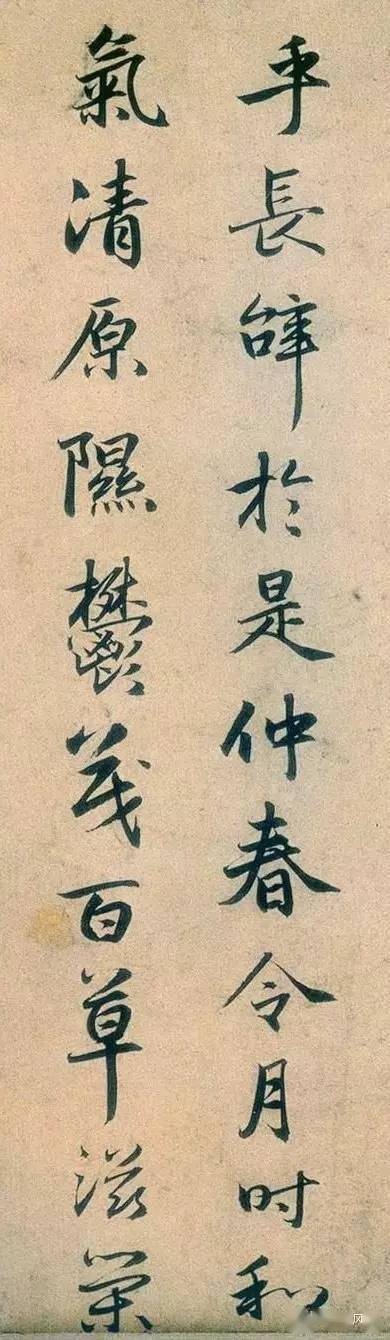 乎長辭於是仲春令月时和
氣清原隰鬱茂百草滋榮